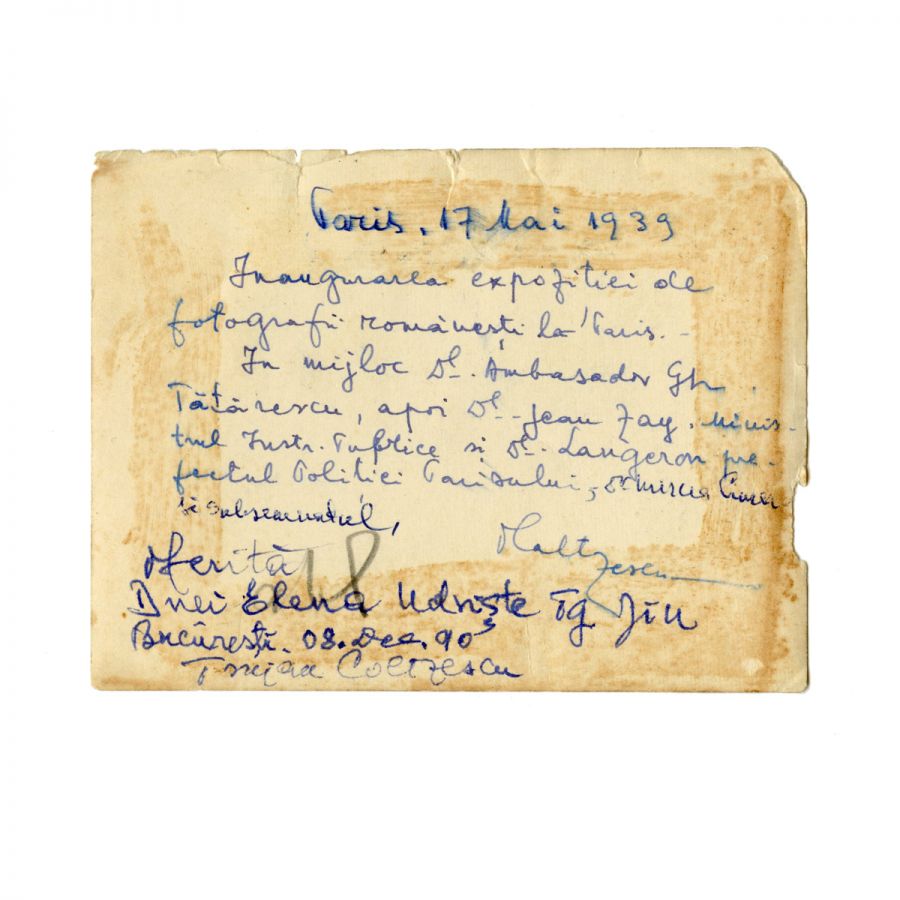 Paris, 17 Mai 1939
Inaugurarea expoziției de
fotografii românești la Paris. -
In mijloc Dl. Ambasador Gh.
Tătărescu, apoi Dl. Jean Zay. Minis-
trul Instr. Publice și Dl. Langeron pre-
fectul Politiei Parisului, Dr Mircea
și subsemnatul,
Oferită
Dnei Elena Udriște Tg Jiu
București. 08. Dec. 90
Traian Coltzescu